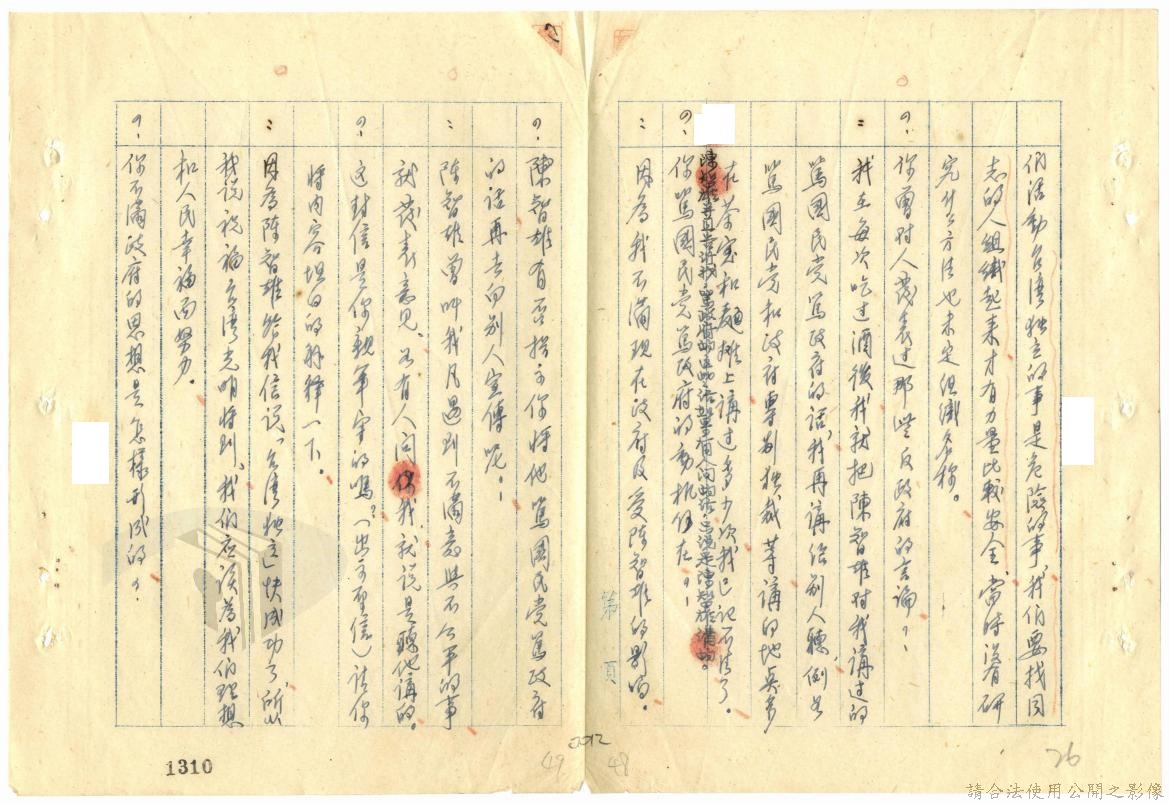 们活動台湾独立的事是危險的事、我们要找同
志的人組織起来才有力量比較安全、當時没有研
究什么方法也未定组織名称。
問、你曾对人發表过那些反政府的言論、
答：我在每次吃过酒後我就把陳智雄对我講过的
罵國民党罵政府的話、我再講给别人聽、例如
罵國民党和政府專制独裁等講的地点多
在茶室和麵摊上講过多少次我已记不清了。
問、你罵國民党罵政府的動机何在。
答：因為我不滿現在政府及受陈智雄的影响。
問、陳智雄有否指示你将他罵國民党罵政府
的话再去向别人宣傳呢。
答：陈智雄曾叫我凡遇到不滿意與不公平的事
就發表意見、若有人问我、就说是聽他講的。
問、这封信是你親筆字的嗎？（出示聖信）請你
将内容坦白的解釋一下。
答：因為陈智雄给我信说、台湾独立快成功了、所以
我说祝福台湾光明将到、我们应该為我们理想
和人民幸福而努力。
問、你不滿政府的思想是怎樣形成的、
第 頁
1310
2012
49
48
26
請合法使用公開之影像